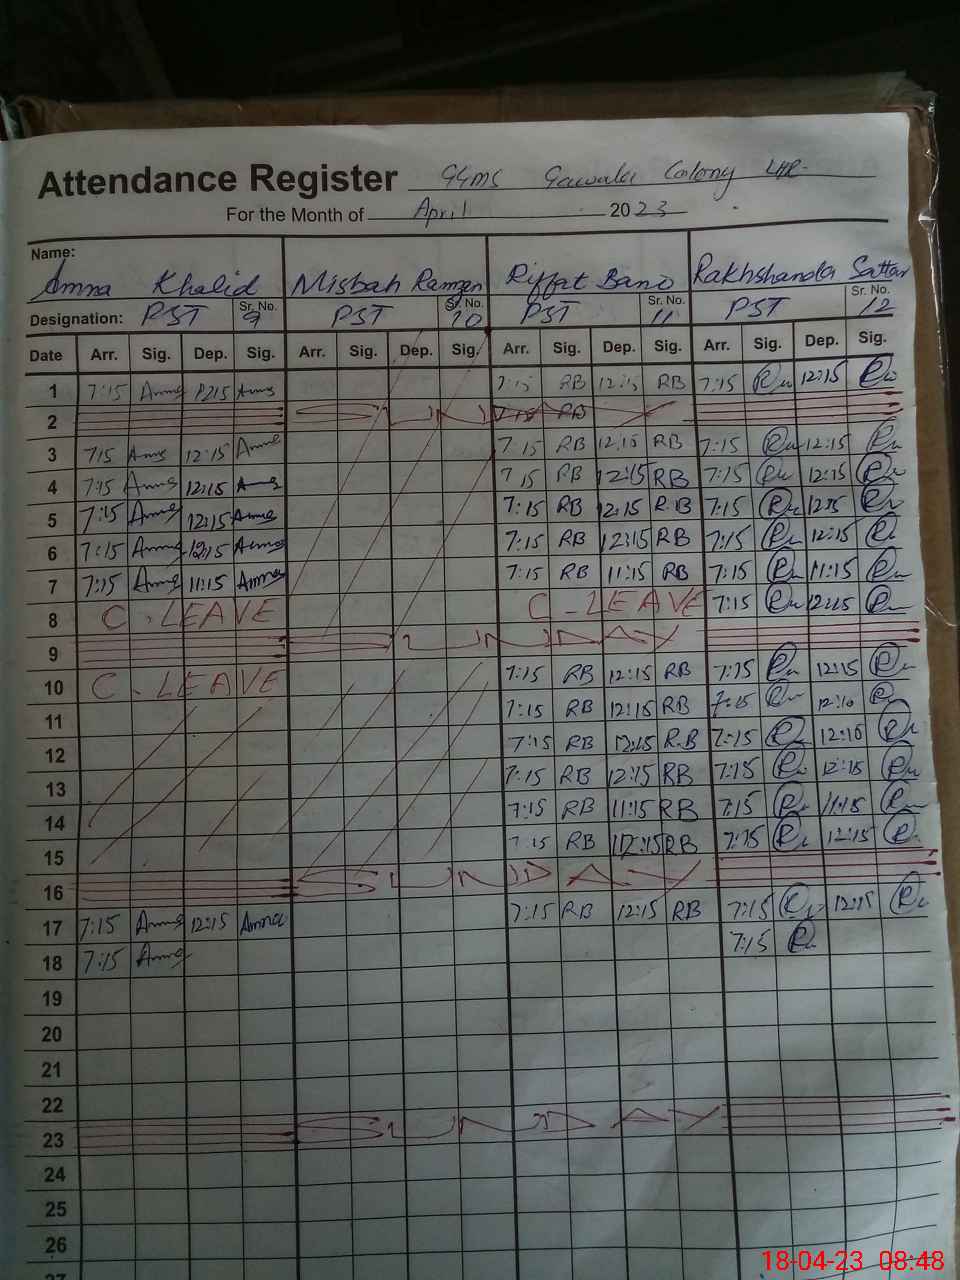 Attendance Register GGMS Gawala Colony LHR
For the Month of April 2023
Name: Amna Khalid Misbah Ramzan Riffat Bano Rakhshanda Sattar
Designation: PST Sr. No. 9 PST Sr. No. 10 PST Sr. No. 11 PST Sr. No. 12
Date Arr. Sig. Dep. Sig. Arr. Sig. Dep. Sig. Arr. Sig. Dep. Sig. Arr. Sig. Dep. Sig.
1 7:15 Amna 12:15 Amna 7:15 RB 12:15 RB 7:15 12:15
2 SUNDAY 7:15 RB
3 7:15 Amna 12:15 Amna 7:15 RB 12:15 RB 7:15 12:15
4 7:15 Amna 12:15 Amna 7:15 RB 12:15 RB 7:15 12:15
5 7:15 Amna 12:15 Amna 7:15 RB 12:15 R.B 7:15 12:15
6 7:15 Amna 12:15 Amna 7:15 RB 12:15 RB 7:15 12:15
7 7:15 Amna 11:15 Amna 7:15 RB 11:15 RB 7:15 11:15
8 C. LEAVE C - LEAVE 7:15 12:15
9 SUNDAY
10 C. LEAVE 7:15 RB 12:15 RB 7:15 12:15
11 7:15 RB 12:15 RB 7:15
12 7:15 RB 12:15 R.B 7:15
13 7:15 RB 12:15 RB 7:15 12:15
14 7:15 RB 11:15 RB 7:15 11:15
15 7:15 RB 12:15 RB 7:15 12:15
16 SUNDAY
17 7:15 Amna 12:15 Amna 7:15 RB 12:15 RB 7:15 12:15
18 7:15 Amna 7:15
19
20
21
22
23 SUNDAY
24
25
26
27
18-04-23 08:48